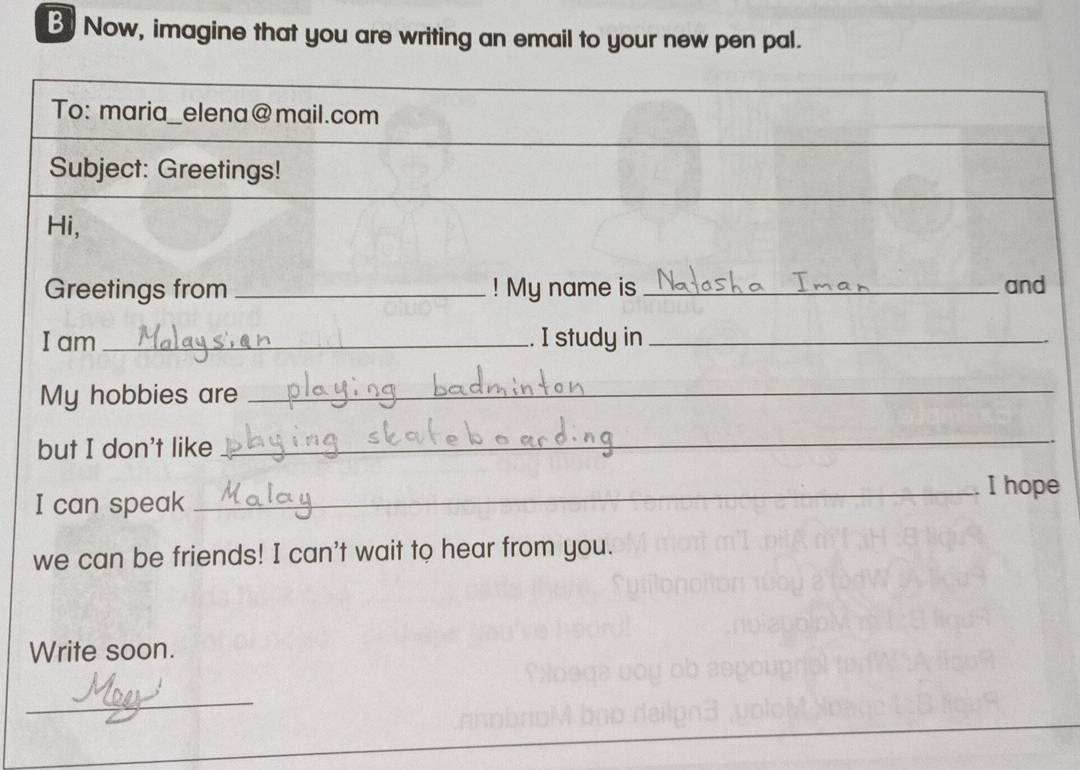 B Now, imagine that you are writing an email to your new pen pal.
To: maria_elena@mail.com
Subject: Greetings!
Hi,
Greetings from ____________! My name is Natasha Iman and
I am Malaysian. I study in ____________.
My hobbies are playing badminton
but I don't like playing skateboarding.
I can speak Malay. I hope
we can be friends! I can't wait to hear from you.
Write soon.